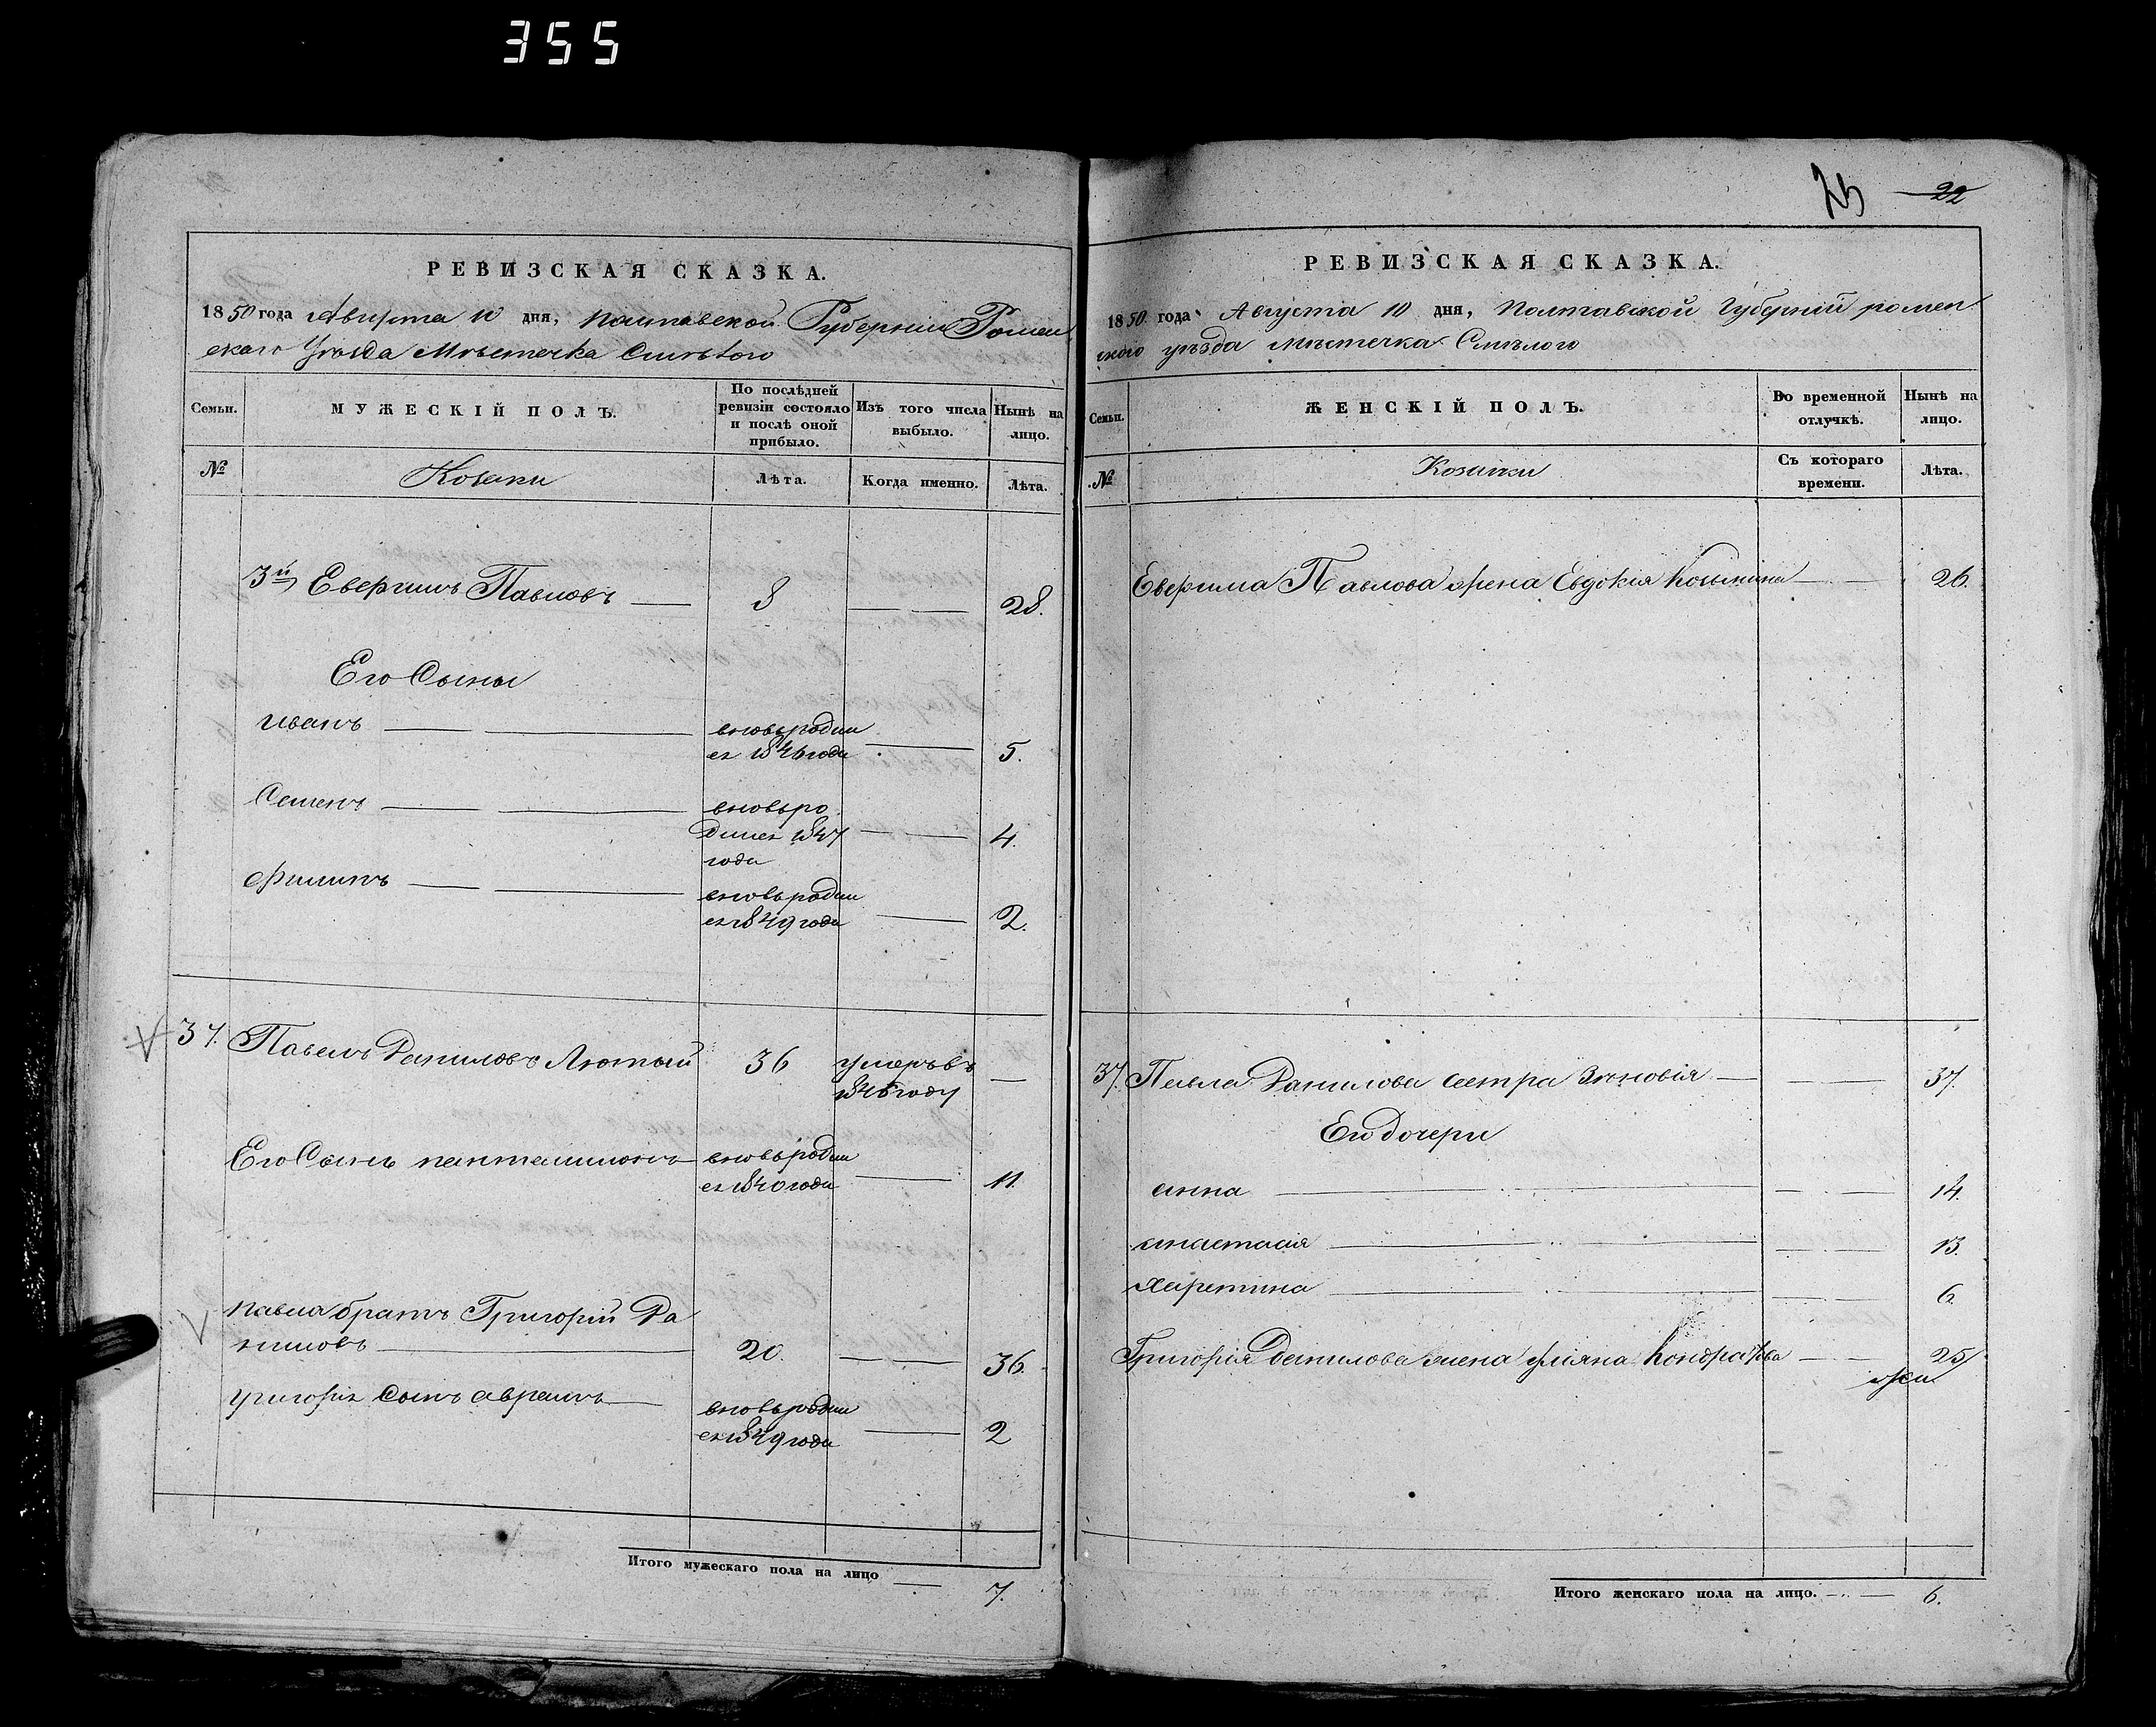 355
23 22
РЕВИЗСКАЯ СКАЗКА.
1850 года Августа 10 дня, Полтавской Губернии Ромен
скаго Уѣзда Мѣстечка Смѣлого
Семьи.
МУЖЕСКІЙ ПОЛЪ.
По послѣдней
ревизіи состояло
и послѣ оной
прибыло.
Изъ того числа
выбыло.
Нынѣ на
лицо.
№
Козаки
Лѣта.
Когда именно.
Лѣта.
3й Евфимъ Павловъ 8 28.
Его Сыны
Иванъ вновьродил
ся 1846 года 5.
Семенъ вновьро
дился 1847 4.
года
Филипъ вновьродил
ся 1849 года 2.
37. Павелъ Даниловъ Лютый 36 умеръ въ
184 году
Его Сынъ пантелимонъ вновьродил
ся 1840 года 11.
павла братъ Григорій Да
ниловъ 20. 36.
григорія Сынъ аврамъ вновьродил
ся 1849 года 2
Итого мужескаго пола на лицо 7.
РЕВИЗСКАЯ СКАЗКА.
1850 года Августа 10 дня, Полтавской Губерніи ромен
ского уѣзда мѣстечка Смѣлого
Семьи.
ЖЕНСКІЙ ПОЛЪ.
Во временной
отлучкѣ.
Нынѣ на
лицо.
№
Козачки
Съ котораго
времени.
Лѣта.
Евфима Павлова жена Евдокія 26.
37. Павла Данилова сестра Зѣновія 37.
Его дочери
анна 14.
анастасія 13.
харетина 6.
Григорія Данилова жена уліяна Кондратова 25
Итого женскаго пола на лицо. 6.